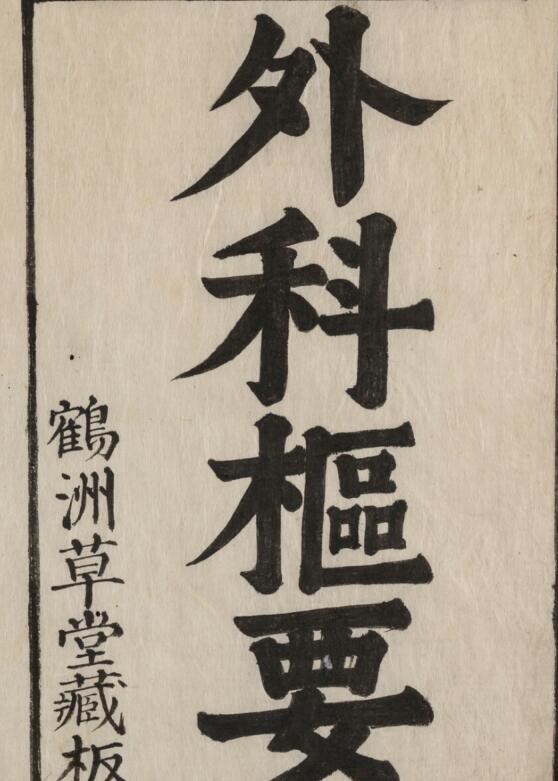 外科樞要
鶴洲草堂藏板